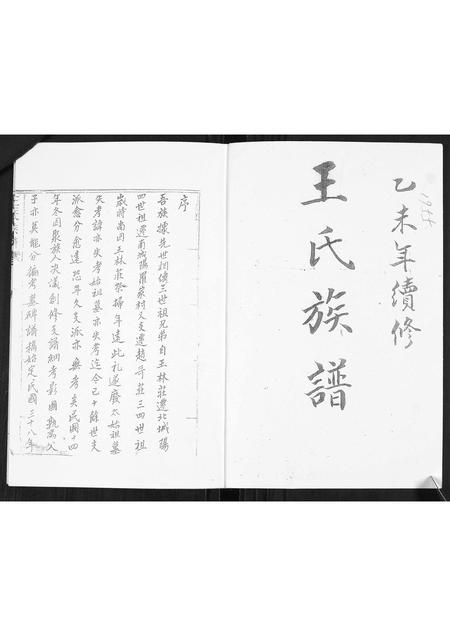 乙未年續修
1955
王氏族譜
序
吾族據先世相傳三世祖兄弟自王林莊遷北城陽
四世祖遷南城陽羅家村又支遷趙哥莊三四世祖
歲時尚回王林莊祭掃年遠此礼遂廢太始祖墓
失考諱亦失考始祖墓亦失考迄今已十餘世支
派愈分愈遠恐年久支派亦無考矣民國十四
年冬因聚族人决議創修支譜細考影圖執
子亦莫能分徧考墓碑譜稿始定民國三十八年